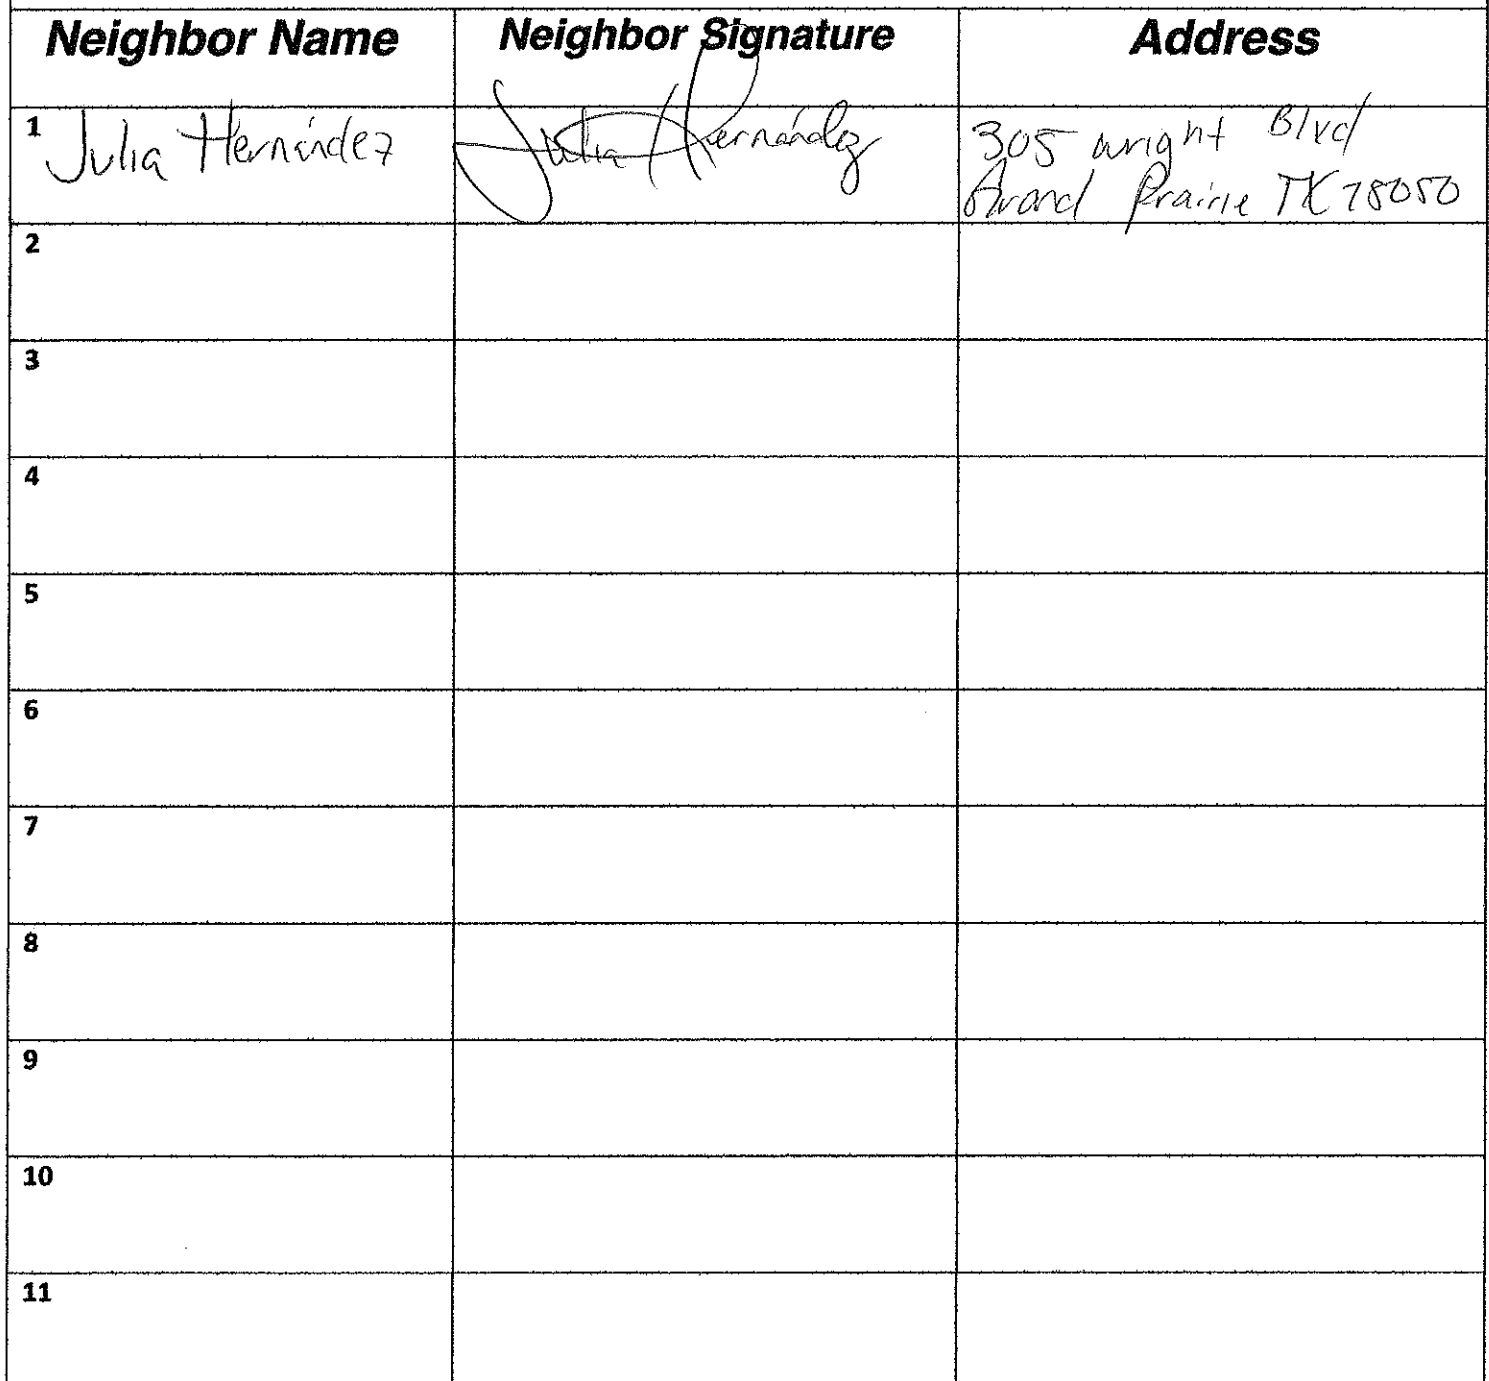 Neighbor Name Neighbor Signature Address
1 Julia Hernández Julia Hernández 305 wright Blvd
Grand Prairie TX 75050
2
3
4
5
6
7
8
9
10
11